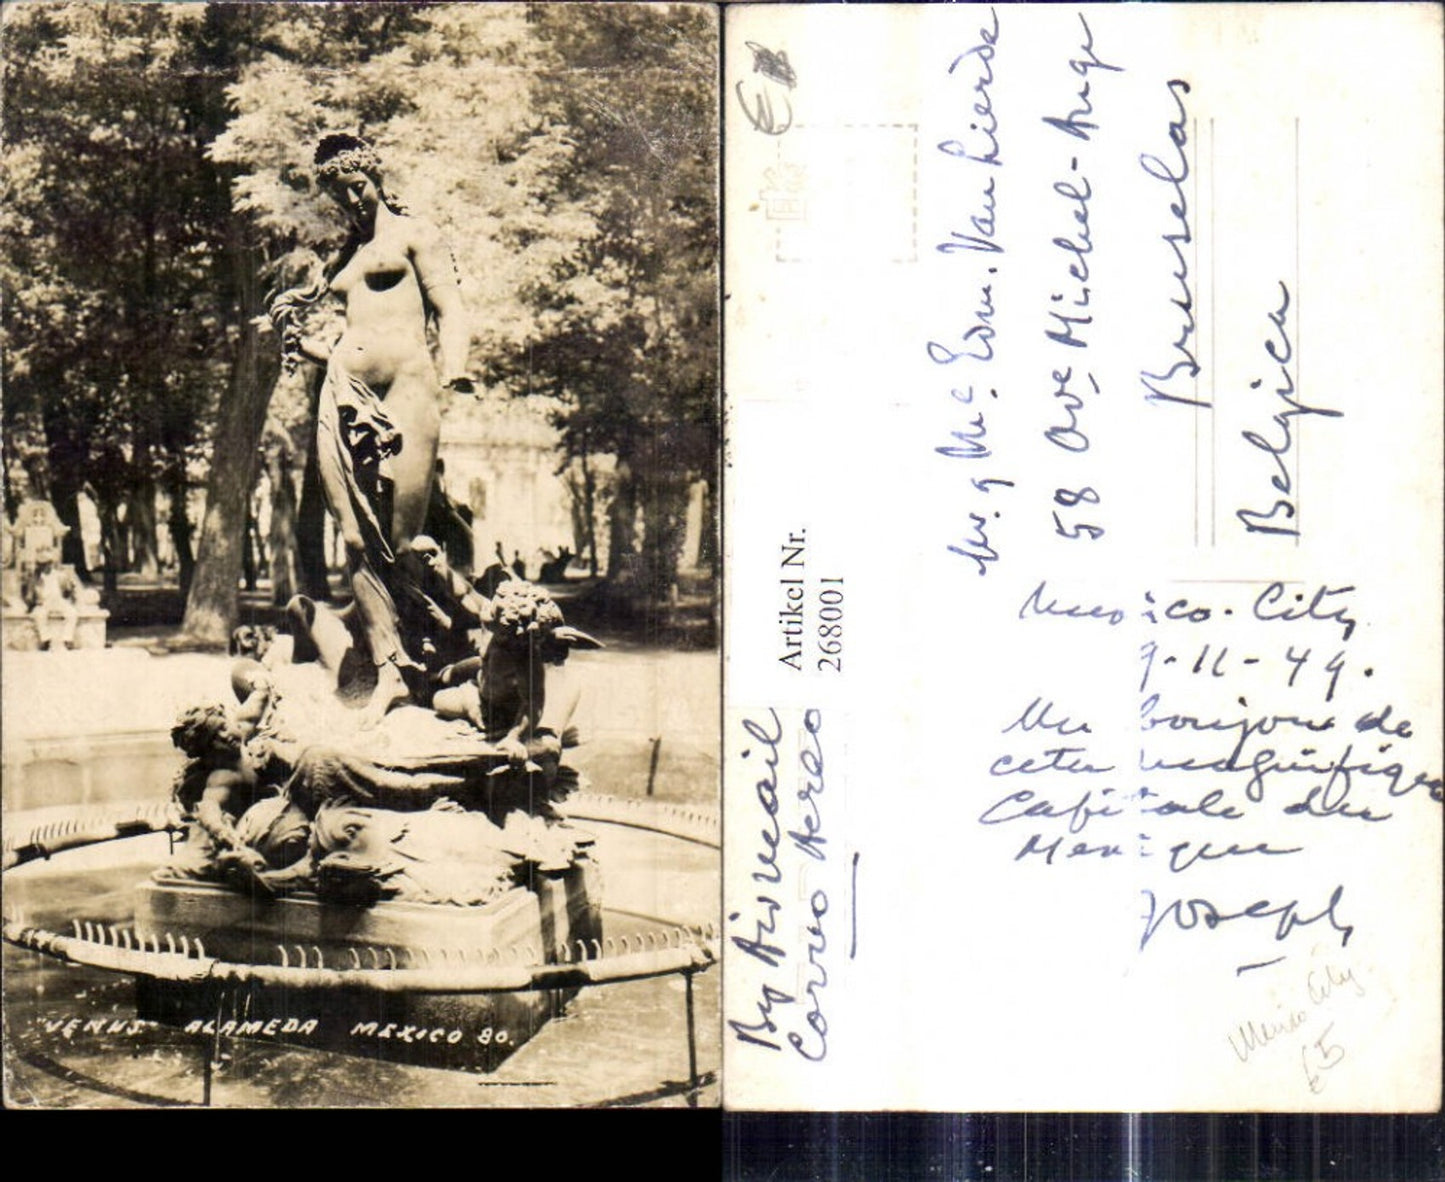 "VENUS" ALAMEDA MEXICO 80.
Sr. y Me. Edm. Van Lierde
58 Ave Michel-Ange
Bruselas
Belgica
Artikel Nr.
268001
By Air mail
Correo Aereo
Mexico-City
9-11-49.
Un bonjour de
cette magnifique
Capitale du
Mexique
Joseph
Mexico City